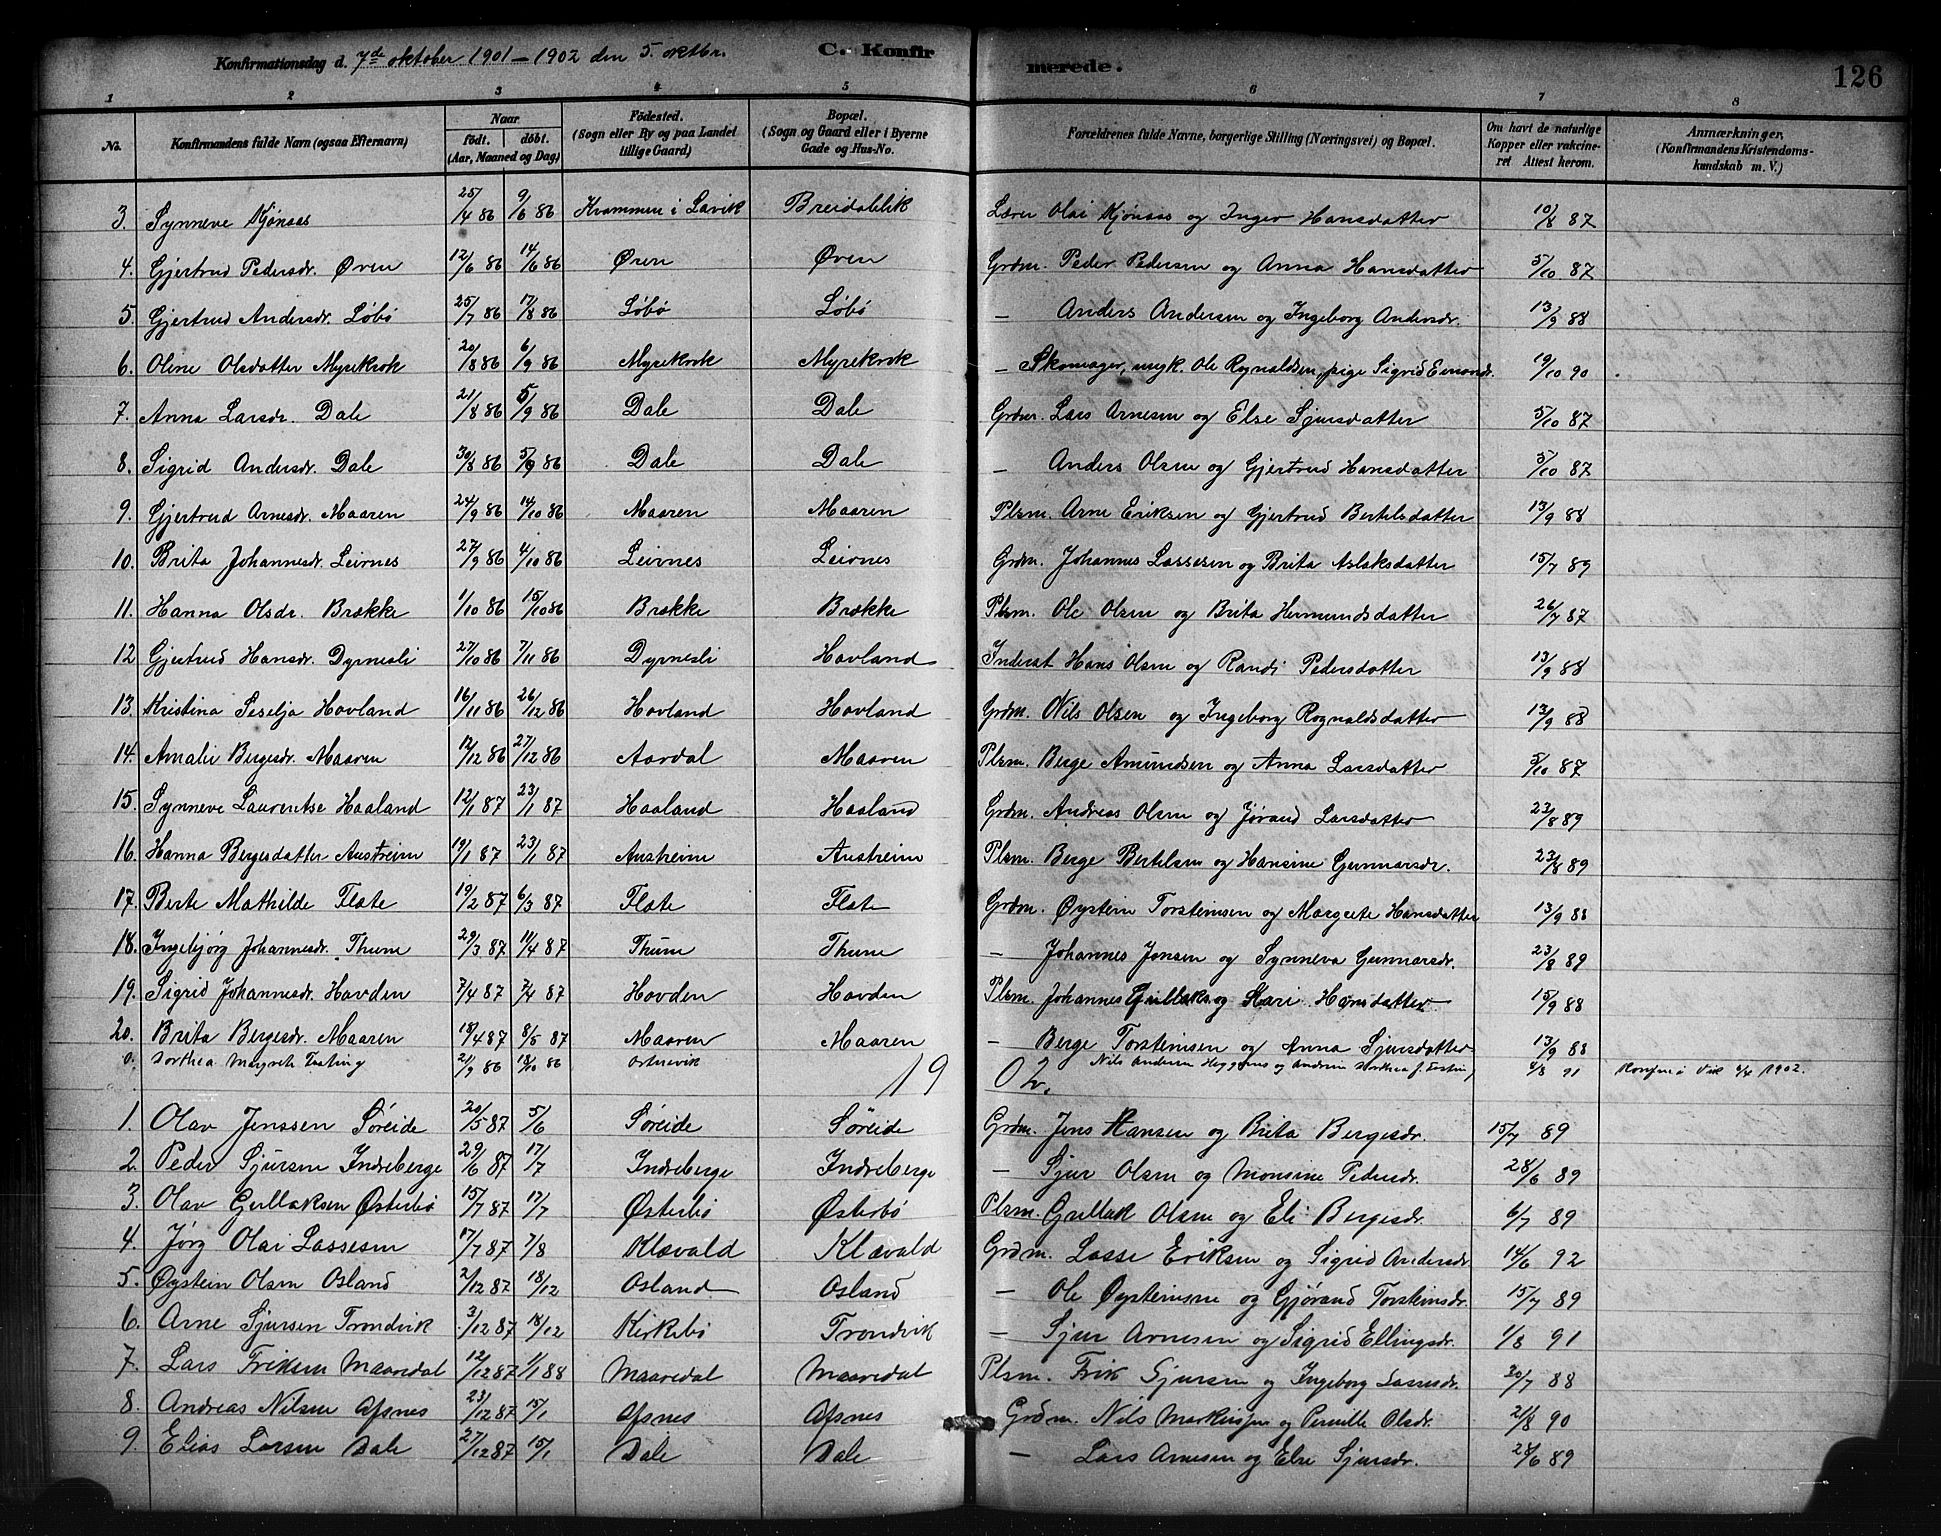 Konfirmationsdag d. 7de oktober 1901 – 1902 den 5. oktbr. C. Konfirmerede. 126
1 2 3 4 5 6 7 8
No. Konfirmandens fulde Navn (ogsaa Efternavn) Naar født. døbt. (Aar, Maaned og Dag) Fødested. (Sogn eller By og paa Landet tillige Gaard) Bopæl. (Sogn og Gaard eller i Byerne Gade og Hus-No. Forældrenes fulde Navne, borgerlige Stilling (Næringsvei) og Bopæl. Om havt de naturlige Kopper eller vakcineret Attest herom. Anmærkninger, (Konfirmandens Kristendomskundskab m. V.)
3. Synneve Mjønaas 25/4 86 9/6 86 Kvammen i Lavik Breidablik Lærer Olai Mjønaas og Inger Hansdatter 10/8 87
4. Gjertrud Pedersdr. Øren 12/6 86 14/6 86 Øren Øren Grdm. Peder Pedersen og Anna Hansdatter 5/10 87
5. Gjertrud Andersdr. Løbø 25/7 86 17/8 86 Løbø Løbø – Anders Andersen og Ingeborg Andersdr. 13/9 88
6. Oline Olsdatter Myrekrok 20/8 86 6/9 86 Myrekrok Myrekrok – Skomager, ungk. Ole Rognaldsen, pige Sigrid 19/10 90
7. Anna Larsdr. Dale 21/8 86 5/9 86 Dale Dale Grdm. Lars Arnesen og Else Sjursdatter 5/10 87
8. Sigrid Andersdr. Dale 30/8 86 5/9 86 Dale Dale – Anders Olsen og Gjertrud Hansdatter 5/10 87
9. Gjertrud Arnesdr. Maaren 24/9 86 14/10 86 Maaren Maaren Plsm. Arne Eriksen og Gjertrud Bertelsdatter 13/9 88
10. Brita Johannesdr. Leirnes 27/9 86 4/10 86 Leirnes Leirnes Grdm. Johannes Lassesen og Brita Aslaksdatter 15/7 89
11. Hanna Olsdr. Brække 1/10 86 15/10 86 Brække Brække Plsm. Ole Olsen og Brita Hermundsdatter 26/7 87
12 Gjertrud Hansdr. Dyrnesli 27/10 86 7/11 86 Dyrnesli Hovland Inderst Hans Olsen og Randi Pedersdatter 13/9 88
13. Kristina Seselja Hovland 16/11 86 26/12 86 Hovland Hovland Grdm. Nils Olsen og Ingeborg Rognaldsdatter 13/9 88
14. Amalie Bergesdr. Maaren 12/12 86 27/12 86 Aardal Maaren Plsm. Berge Amundsen og Anna Larsdatter 5/10 87
15. Synneve Laurentse Haaland 12/1 87 23/1 87 Haaland Haaland Grdm. Andreas Olsen og Jørand Larsdatter 23/8 89
16. Hanna Bergesdatter Austreim 19/1 87 23/1 87 Austreim Austreim Plsm. Berge Bertelsen og Hansine Gunnarsdr. 23/8 89
17. Berte Mathilde Flate 19/2 87 6/3 87 Flate Flate Grdm. Øystein Torsteinsen og Margrete Hansdatter 13/9 88
18. Ingebjørg Johannesdr. Thune 29/3 87 11/4 87 Thune Thune – Johannes Jonsen og Synneva Gunnarsdr. 23/8 89
19. Sigrid Johannesdr. Hovden 7/4 87 7/4 87 Hovden Hovden Plsm. Johannes Gullaks. og Kari Hansdatter 15/9 88
20. Brita Bergesdr. Maaren 18/4 87 8/5 87 Maaren Maaren – Berge Torsteinsen og Anna Sjursdatter 13/9 88
0. Dorthea Margrete 21/9 86 18/10 86 Nils Andersen og Andrine Dorthea f. 4/8 91 Konfirm. i Vik 6/4 1902.
19 02.
1. Olav Jenssen Søreide 20/5 87 5/6 Søreide Søreide Grdm. Jens Hansen og Brita Bergesdr. 15/7 89
2. Peder Sjursen Indreberge 29/6 87 17/7 Indreberge Indreberge – Sjur Olsen og Monsine Pedersdr. 28/6 89
3. Olav Gullaksen Østerbø 15/7 87 17/7 Østerbø Østerbø Plsm. Gullak Olsen og Eli Bergesdr. 6/7 89
4. Jørg Olai Lassesen 17/7 87 7/8 Klævald Klævald Grdm. Lasse Eriksen og Sigrid Andersdr. 14/6 92
5. Øystein Olsen Osland 2/12 87 18/12 Osland Osland – Ole Øysteinsen og Gjørand Torsteinsdr. 15/7 89
6. Arne Sjursen Trondvik 3/12 87 18/12 Kirkebø Trondvik – Sjur Arnesen og Sigrid Ellingsdr. 1/8 91
7. Lars Friksen Maaredal 12/12 87 1/1 88 Maaredal Maaredal Plsm. Frik Sjursen og Ingeborg Lassesdr. 20/7 88
8. Andreas Nilsen Ofsnes 23/12 87 15/1 Ofsnes Ofsnes Grdm. Nils Markussen og Pernille Olsdr. 21/8 90
9. Elias Larsen Dale 27/12 87 15/1 Dale Dale – Lars Arnesen og Else Sjursdr. 28/6 89